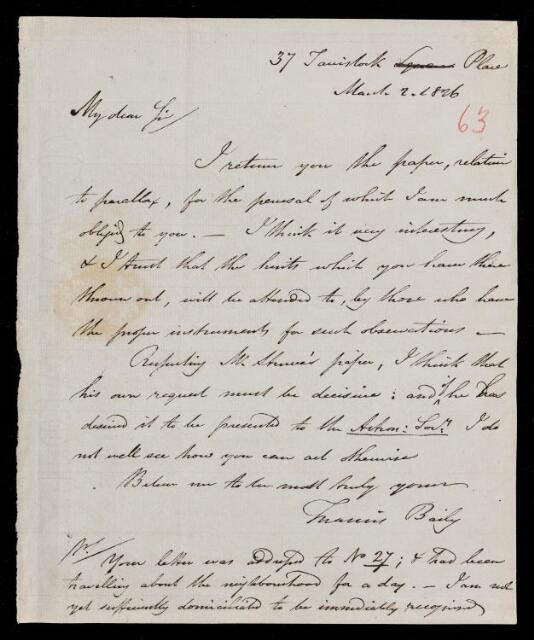 37 Tavistock Square Place
March 2. 1826
63
My dear Sir/
I return you the paper, relative
to parallax, for the perusal of which I am much
obliged to you. — I think it very interesting,
& I trust that the hints which you have there
thrown out, will be attended to, by those who have
the proper instruments for such observations —
Respecting Mr. Struve's paper, I think that
his own request must be decisive: and if he has
desired it to be presented to the Astron: Socy. I do
not well see how you can act otherwise
Believe me to be most truly yours
Francis Baily
Your letter was addressed to No 27; & had been
travelling about the neighbourhood for a day. — I am not
yet sufficiently domiciliated to be immediately recognised